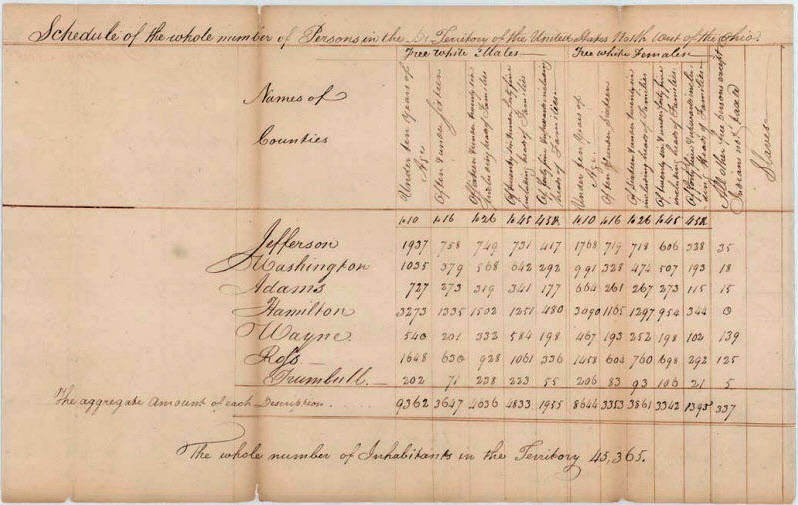 Schedule of the whole number of Persons in the Territory of the United States North West of the Ohio.
Free White Males Free white Females
Names of
Counties
Under ten Years of Age
Of ten & under Sixteen
Of Sixteen & under twenty six including heads of Families
Of twenty six & under forty five including heads of Families
Of forty five & upwards including heads of Families
Under ten Years of Age
Of ten & under Sixteen
Of Sixteen & under twenty six including heads of Families
Of twenty six & under forty five including heads of Families
Of forty five & upwards including Heads of Families
All other free persons except Indians not taxed
Slaves
to 10 to 16 to 26 to 45 45 & to 10 to 16 to 26 to 45 45 &
Jefferson 1937 758 749 731 417 1768 719 718 606 328 35
Washington 1035 379 568 642 292 991 328 474 507 193 18
Adams 727 273 319 341 177 664 261 267 273 115 15
Hamilton 3273 1335 1502 1251 480 3090 1165 1297 954 344 0
Wayne 540 201 332 584 198 467 193 252 198 102 139
Ross 1648 630 928 1061 336 1458 604 760 698 292 125
Trumbull 202 71 238 223 55 206 83 93 106 21 5
The aggregate amount of each Discription. 9362 3647 4636 4833 1955 8644 3353 3861 3342 1395 337
The whole number of Inhabitants in the Territory 45,365.